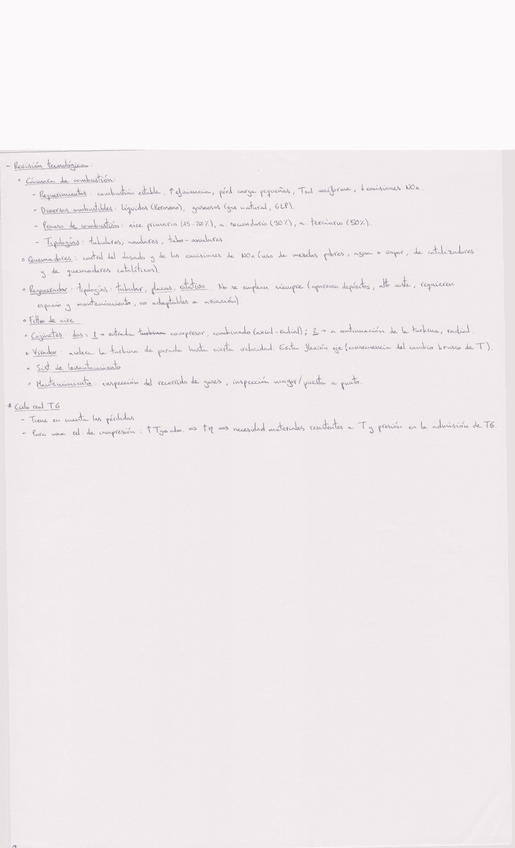 - Revisión tecnológica:
• Cámara de combustión:
- Requerimientos: combustión estable, ↑ eficiencia, pérd carga pequeñas, Tsal uniforme, ↓ emisiones NOx.
- Diversos combustibles: líquidos (Keroseno), gaseosos (gas natural, GLP).
- Proceso de combustión: aire primario (15-20%), a. secundario (30%), a. terciario (50%).
- Tipologías: tubulares, anulares, tubo-anulares
• Quemadores: control del dosado y de las emisiones de NOx (uso de mezclas pobres, agua o vapor, de catalizadores
y de quemadores catalíticos).
• Regenerador: tipologías: tubular, placas, rotativo. No se emplean siempre (aparecen depósitos, alto coste, requieren
espacio y mantenimiento, no adaptables a aviación).
• Filtro de aire
• Cojinetes: dos: 1 → entrada compresor, combinado (axial-radial); 2 → a continuación de la turbina, radial
• Virador: acelera la turbina de parada hasta cierta velocidad. Evita flexión eje (consecuencia del cambio brusco de T).
• Sist de lanzamiento
• Mantenimiento: inspección del recorrido de gases, inspección mayor/puesta a punto.
• Ciclo real TG
- Tiene en cuenta las pérdidas
- Para una rel. de compresión: ↑ T ⇒ ↑η ⇒ necesidad materiales resistentes a T y presión en la admisión de TG